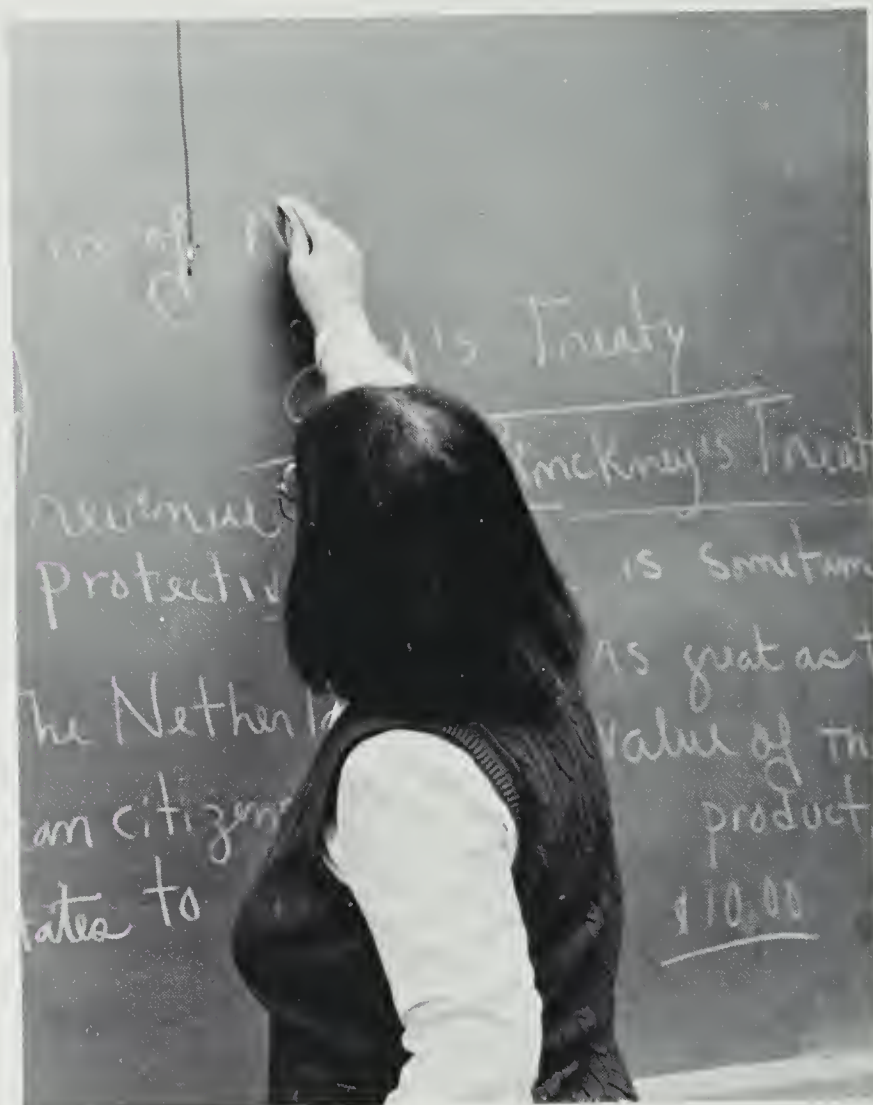 of
's Treaty
Pinckney's Treat
revenue
protectiv
is sometim
as great as t
he Netherla
value of th
an citizen
product
tates to
$10.00